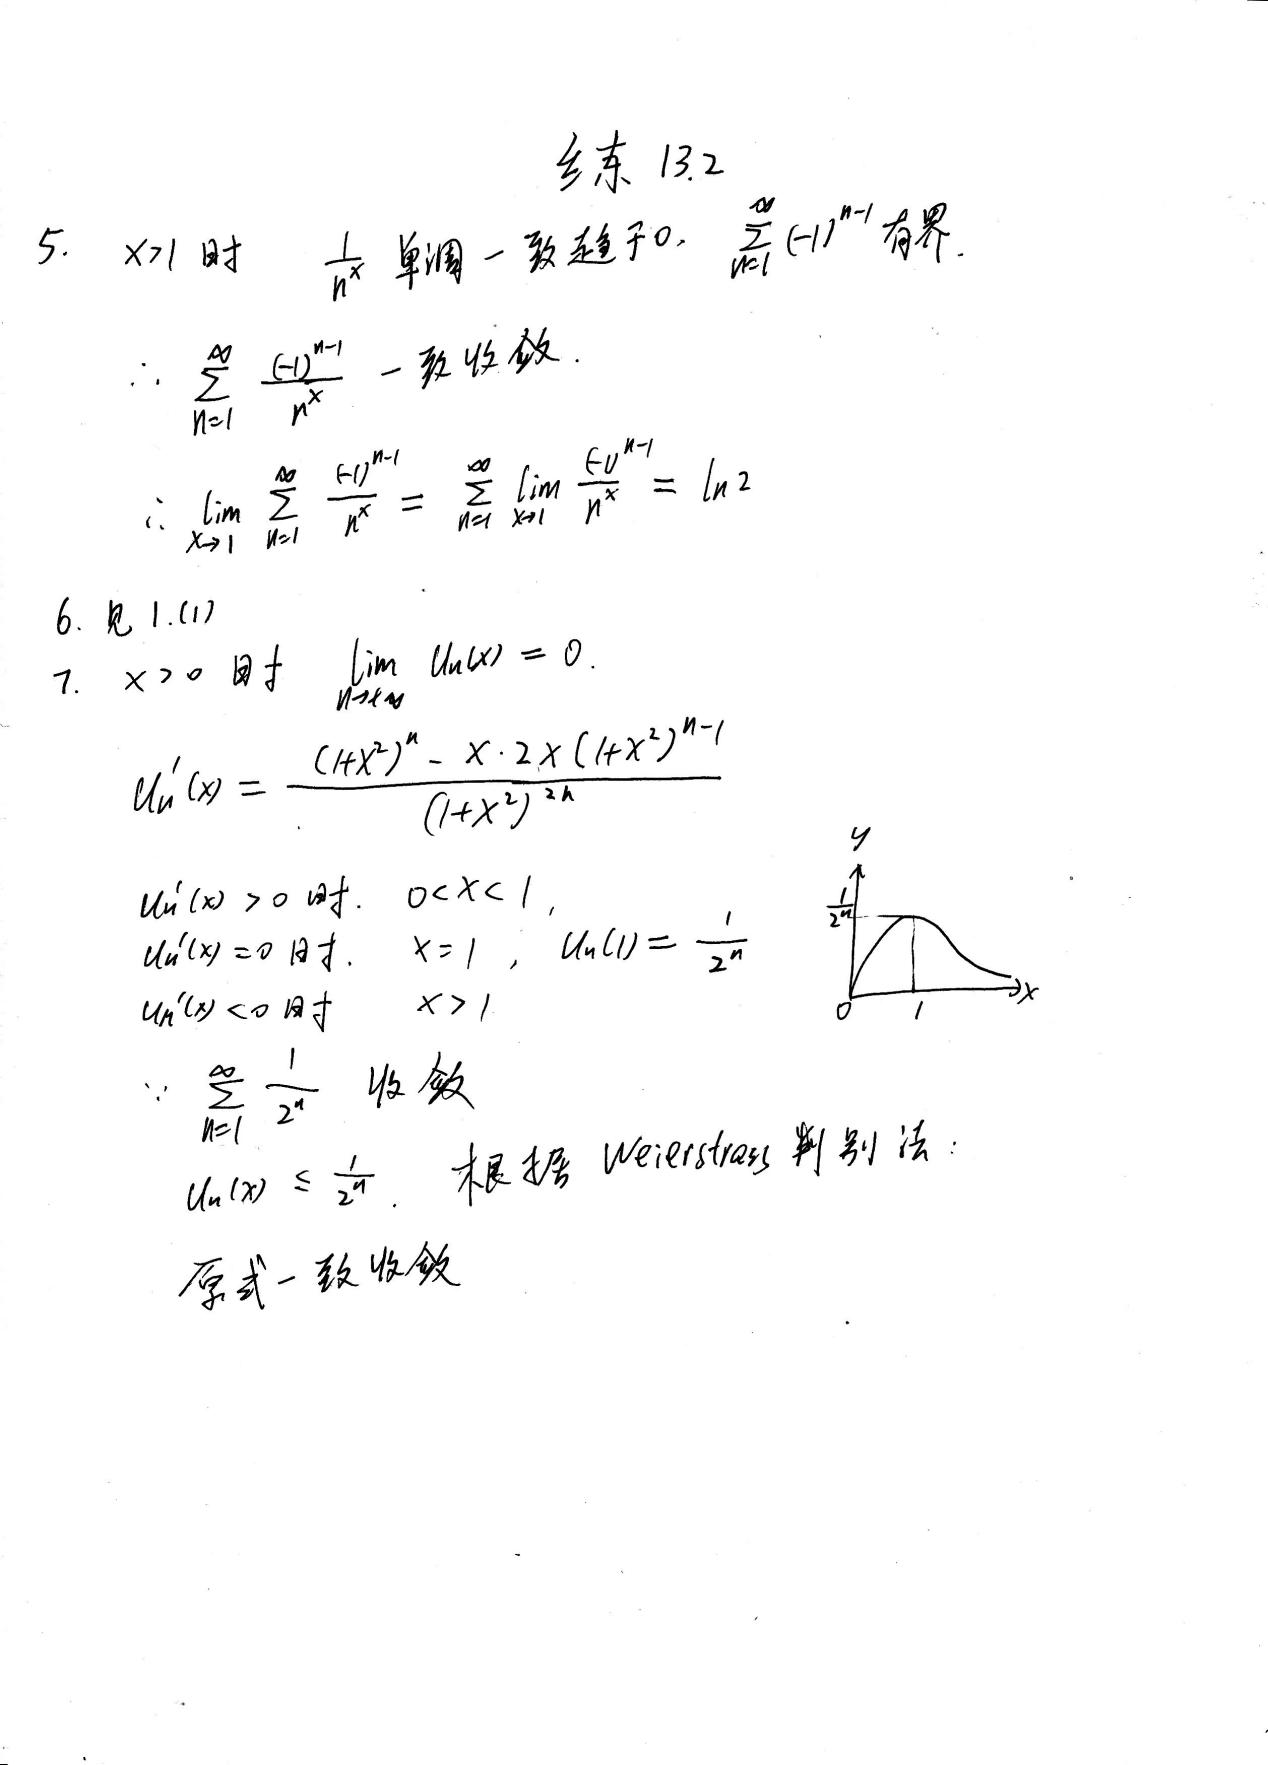 练 13.2
5. x>1时 1/n^x 单调一致趋于0. ∑_{n=1}^∞ (-1)^{n-1} 有界.
∴ ∑_{n=1}^∞ (-1)^{n-1}/n^x 一致收敛.
∴ lim_{x→1} ∑_{n=1}^∞ (-1)^{n-1}/n^x = ∑_{n=1}^∞ lim_{x→1} (-1)^{n-1}/n^x = ln2
6. 见 1.(1)
7. x>0 时 lim_{n→+∞} Un(x) = 0.
Un'(x) = ((1+x²)^n - x·2x(1+x²)^{n-1})/(1+x²)^{2n}
Un'(x) >0 时. 0<x<1,
Un'(x) =0 时. x=1, Un(1) = 1/2^n
Un'(x) <0 时 x>1
y
1/2^n
0 1 x
∵ ∑_{n=1}^∞ 1/2^n 收敛
Un(x) ≤ 1/2^n. 根据 Weierstrass 判别法:
原式一致收敛